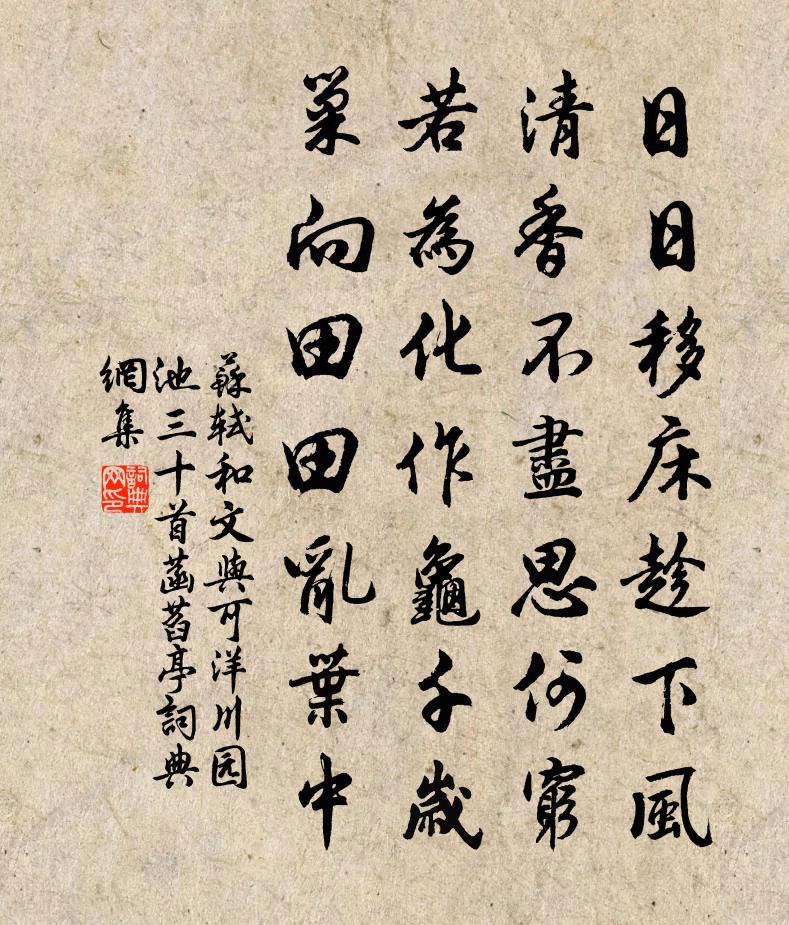 日日移床趁下風
清香不盡思何窮
若為化作龜千歲
巢向田田亂葉中
蘇軾和文與可洋川园
池三十首菡萏亭詞典
網集
詞典
网印